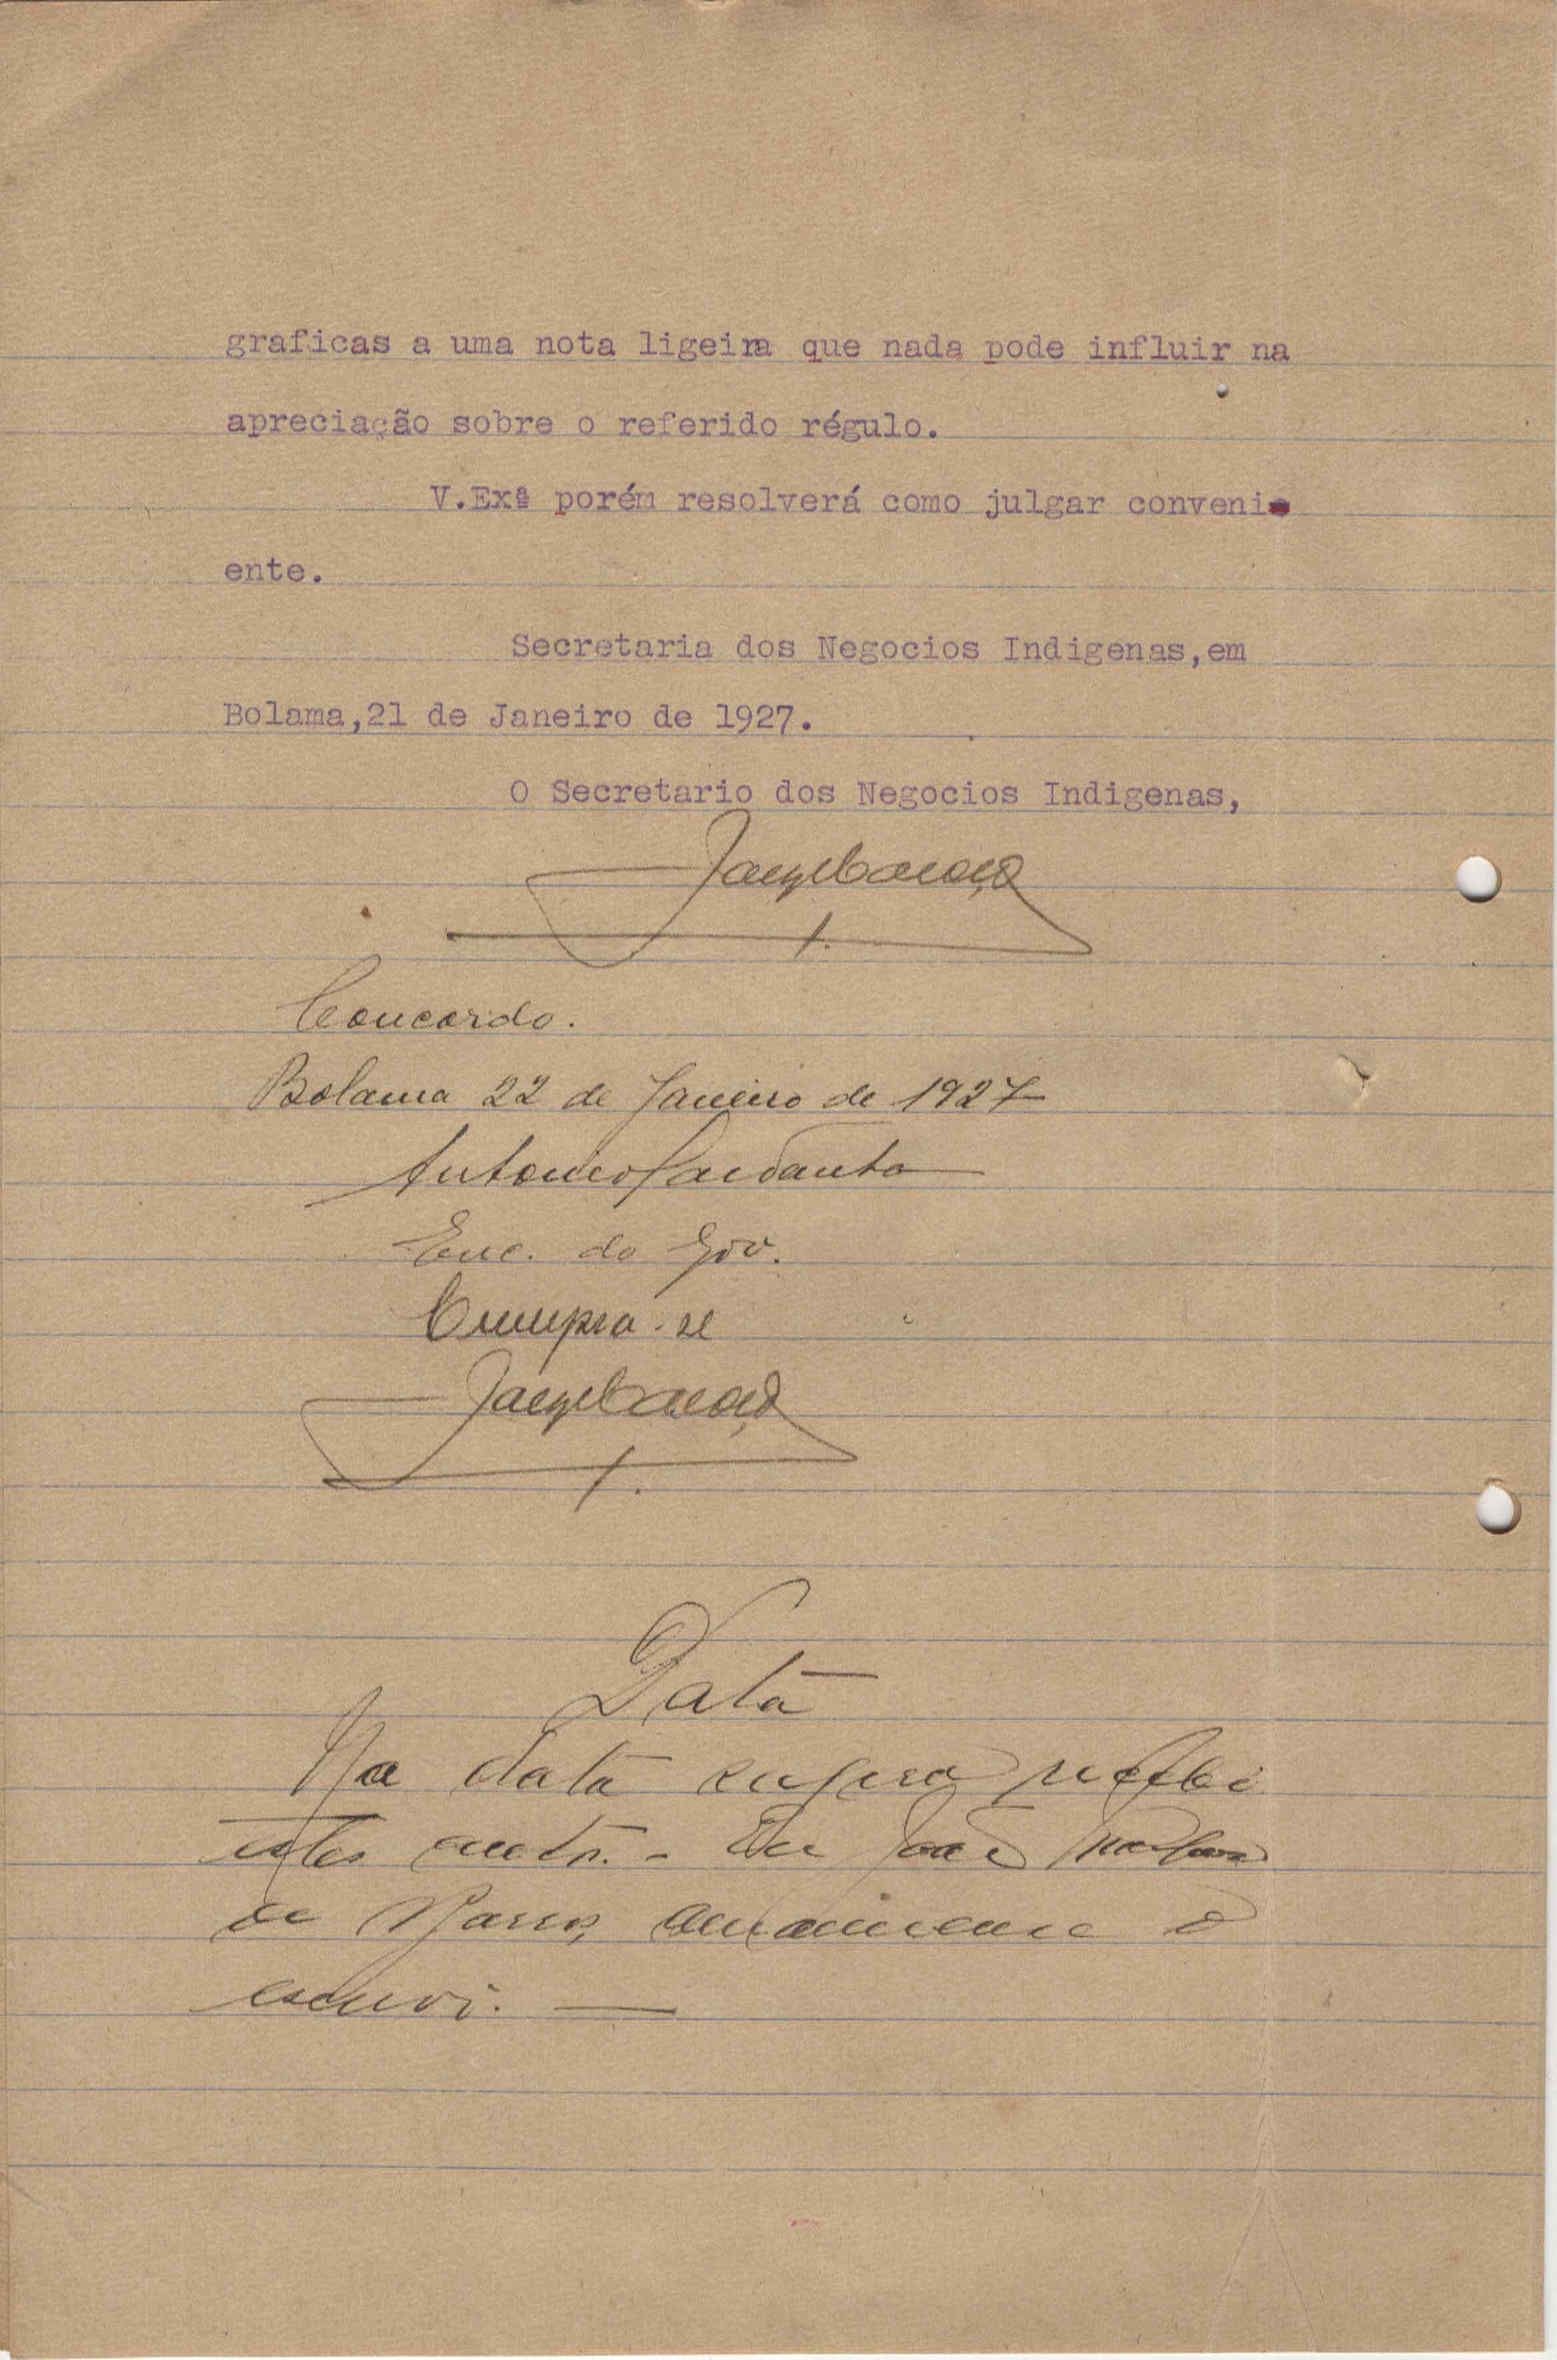 graficas a uma nota ligeira que nada pode influir na
apreciação sobre o referido régulo.
V.Exª porém resolverá como julgar conveni
ente.
Secretaria dos Negocios Indigenas,em
Bolama,21 de Janeiro de 1927.
O Secretario dos Negocios Indigenas,
Concordo.
Bolama 22 de Janeiro de 1927
Antonio
Enc. do Gov.
Cumpra-se
Data
Na data supra recebi
estes autos. - Eu João
de Barros, amanuense o
escrevi.